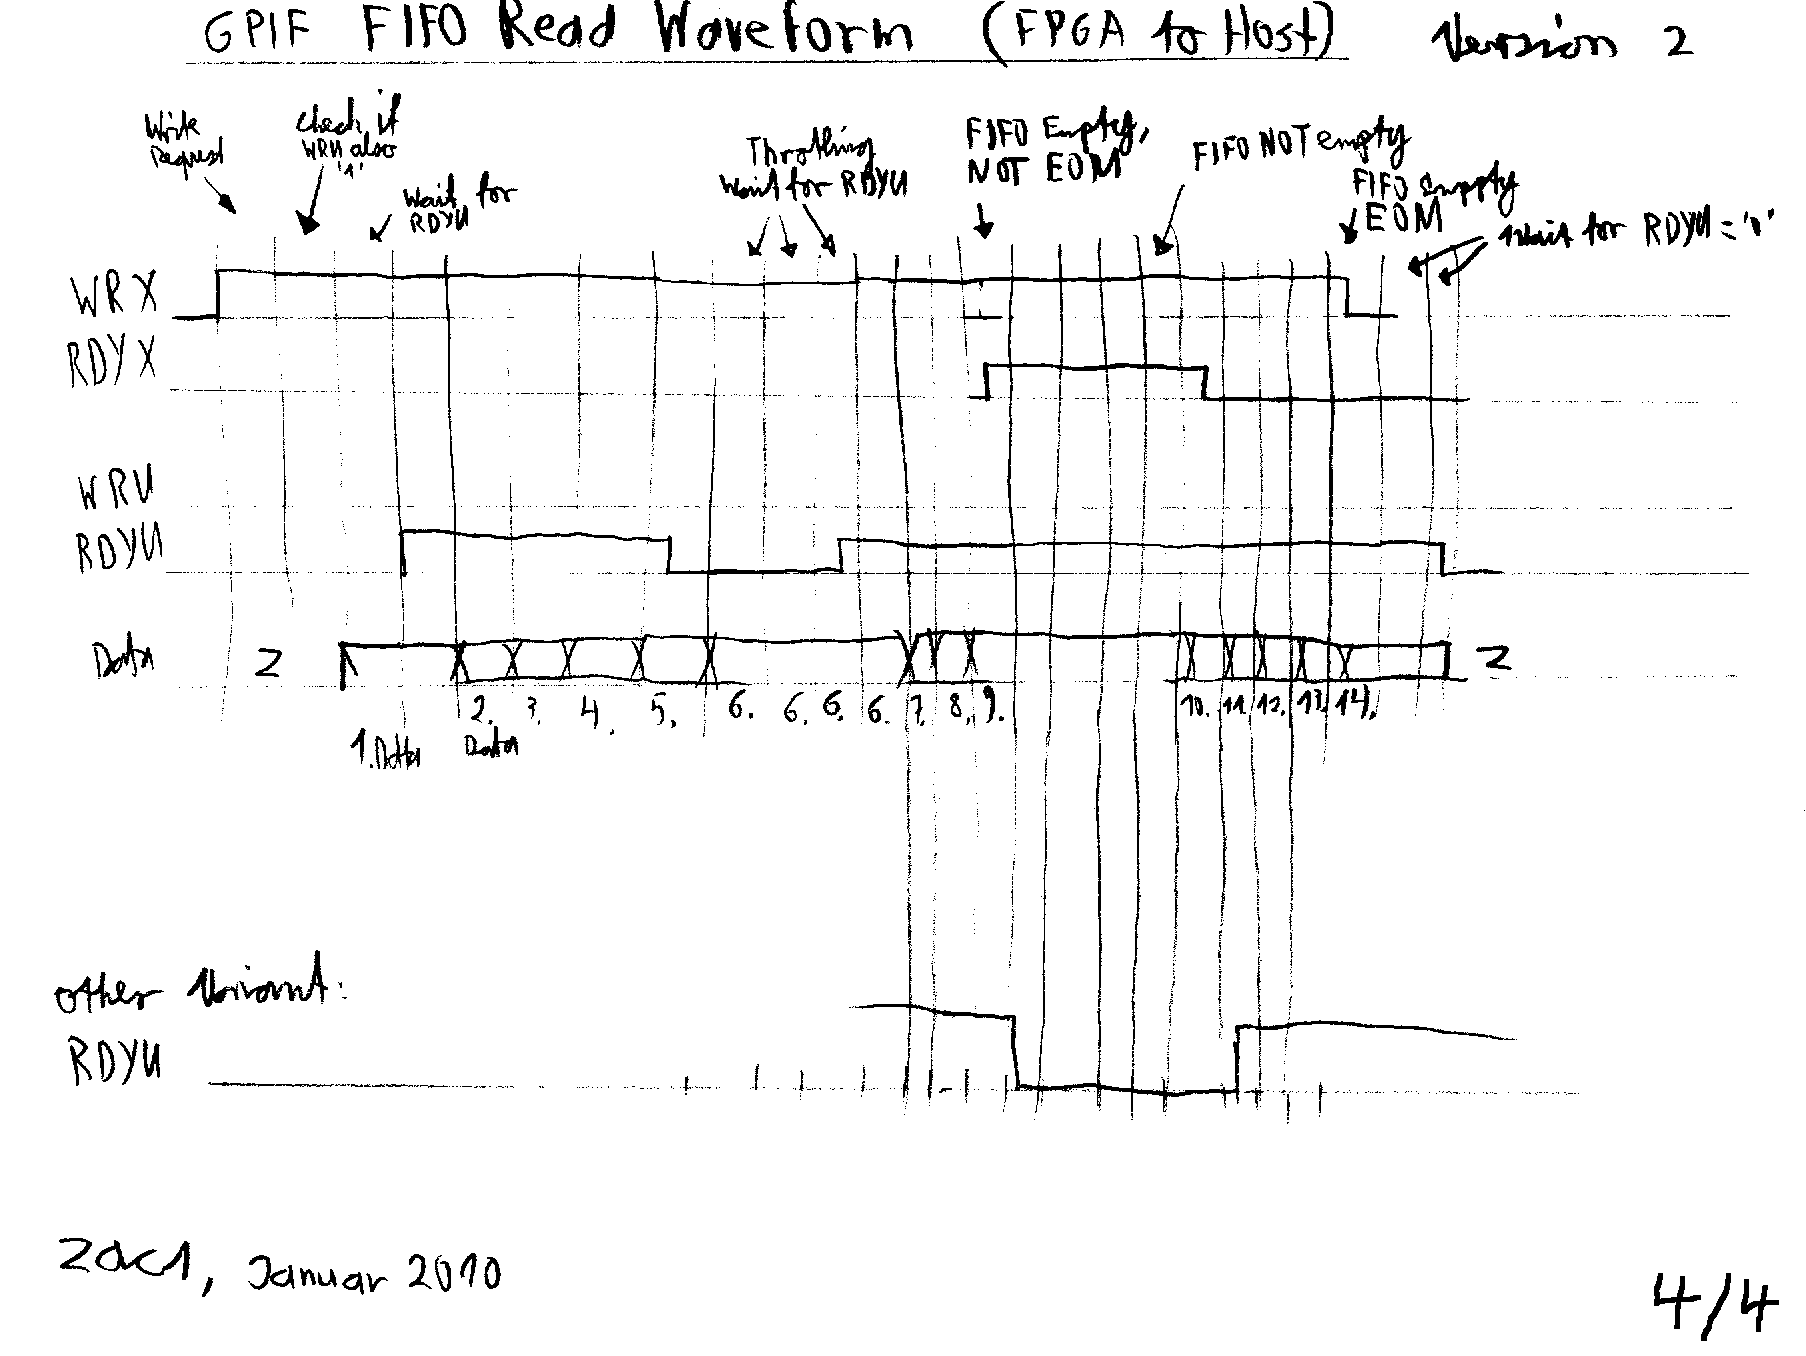 GPIF FIFO Read Waveform (FPGA to Host) Version 2
Write
Request
check if
WRU also
'1'
Wait for
RDYU
Throttling
Wait for RDYU
FIFO Empty,
NOT EOM
FIFO NOT empty
FIFO empty
EOM
Wait for RDYU = '0'
WRX
RDYX
WRU
RDYU
Data Z Z
1. Data
2. 3. 4. 5. 6. 6. 6. 6. 7. 8. 9. 10. 11. 12. 13. 14.
Data
other Variant:
RDYU
zac1, Januar 2010
4/4